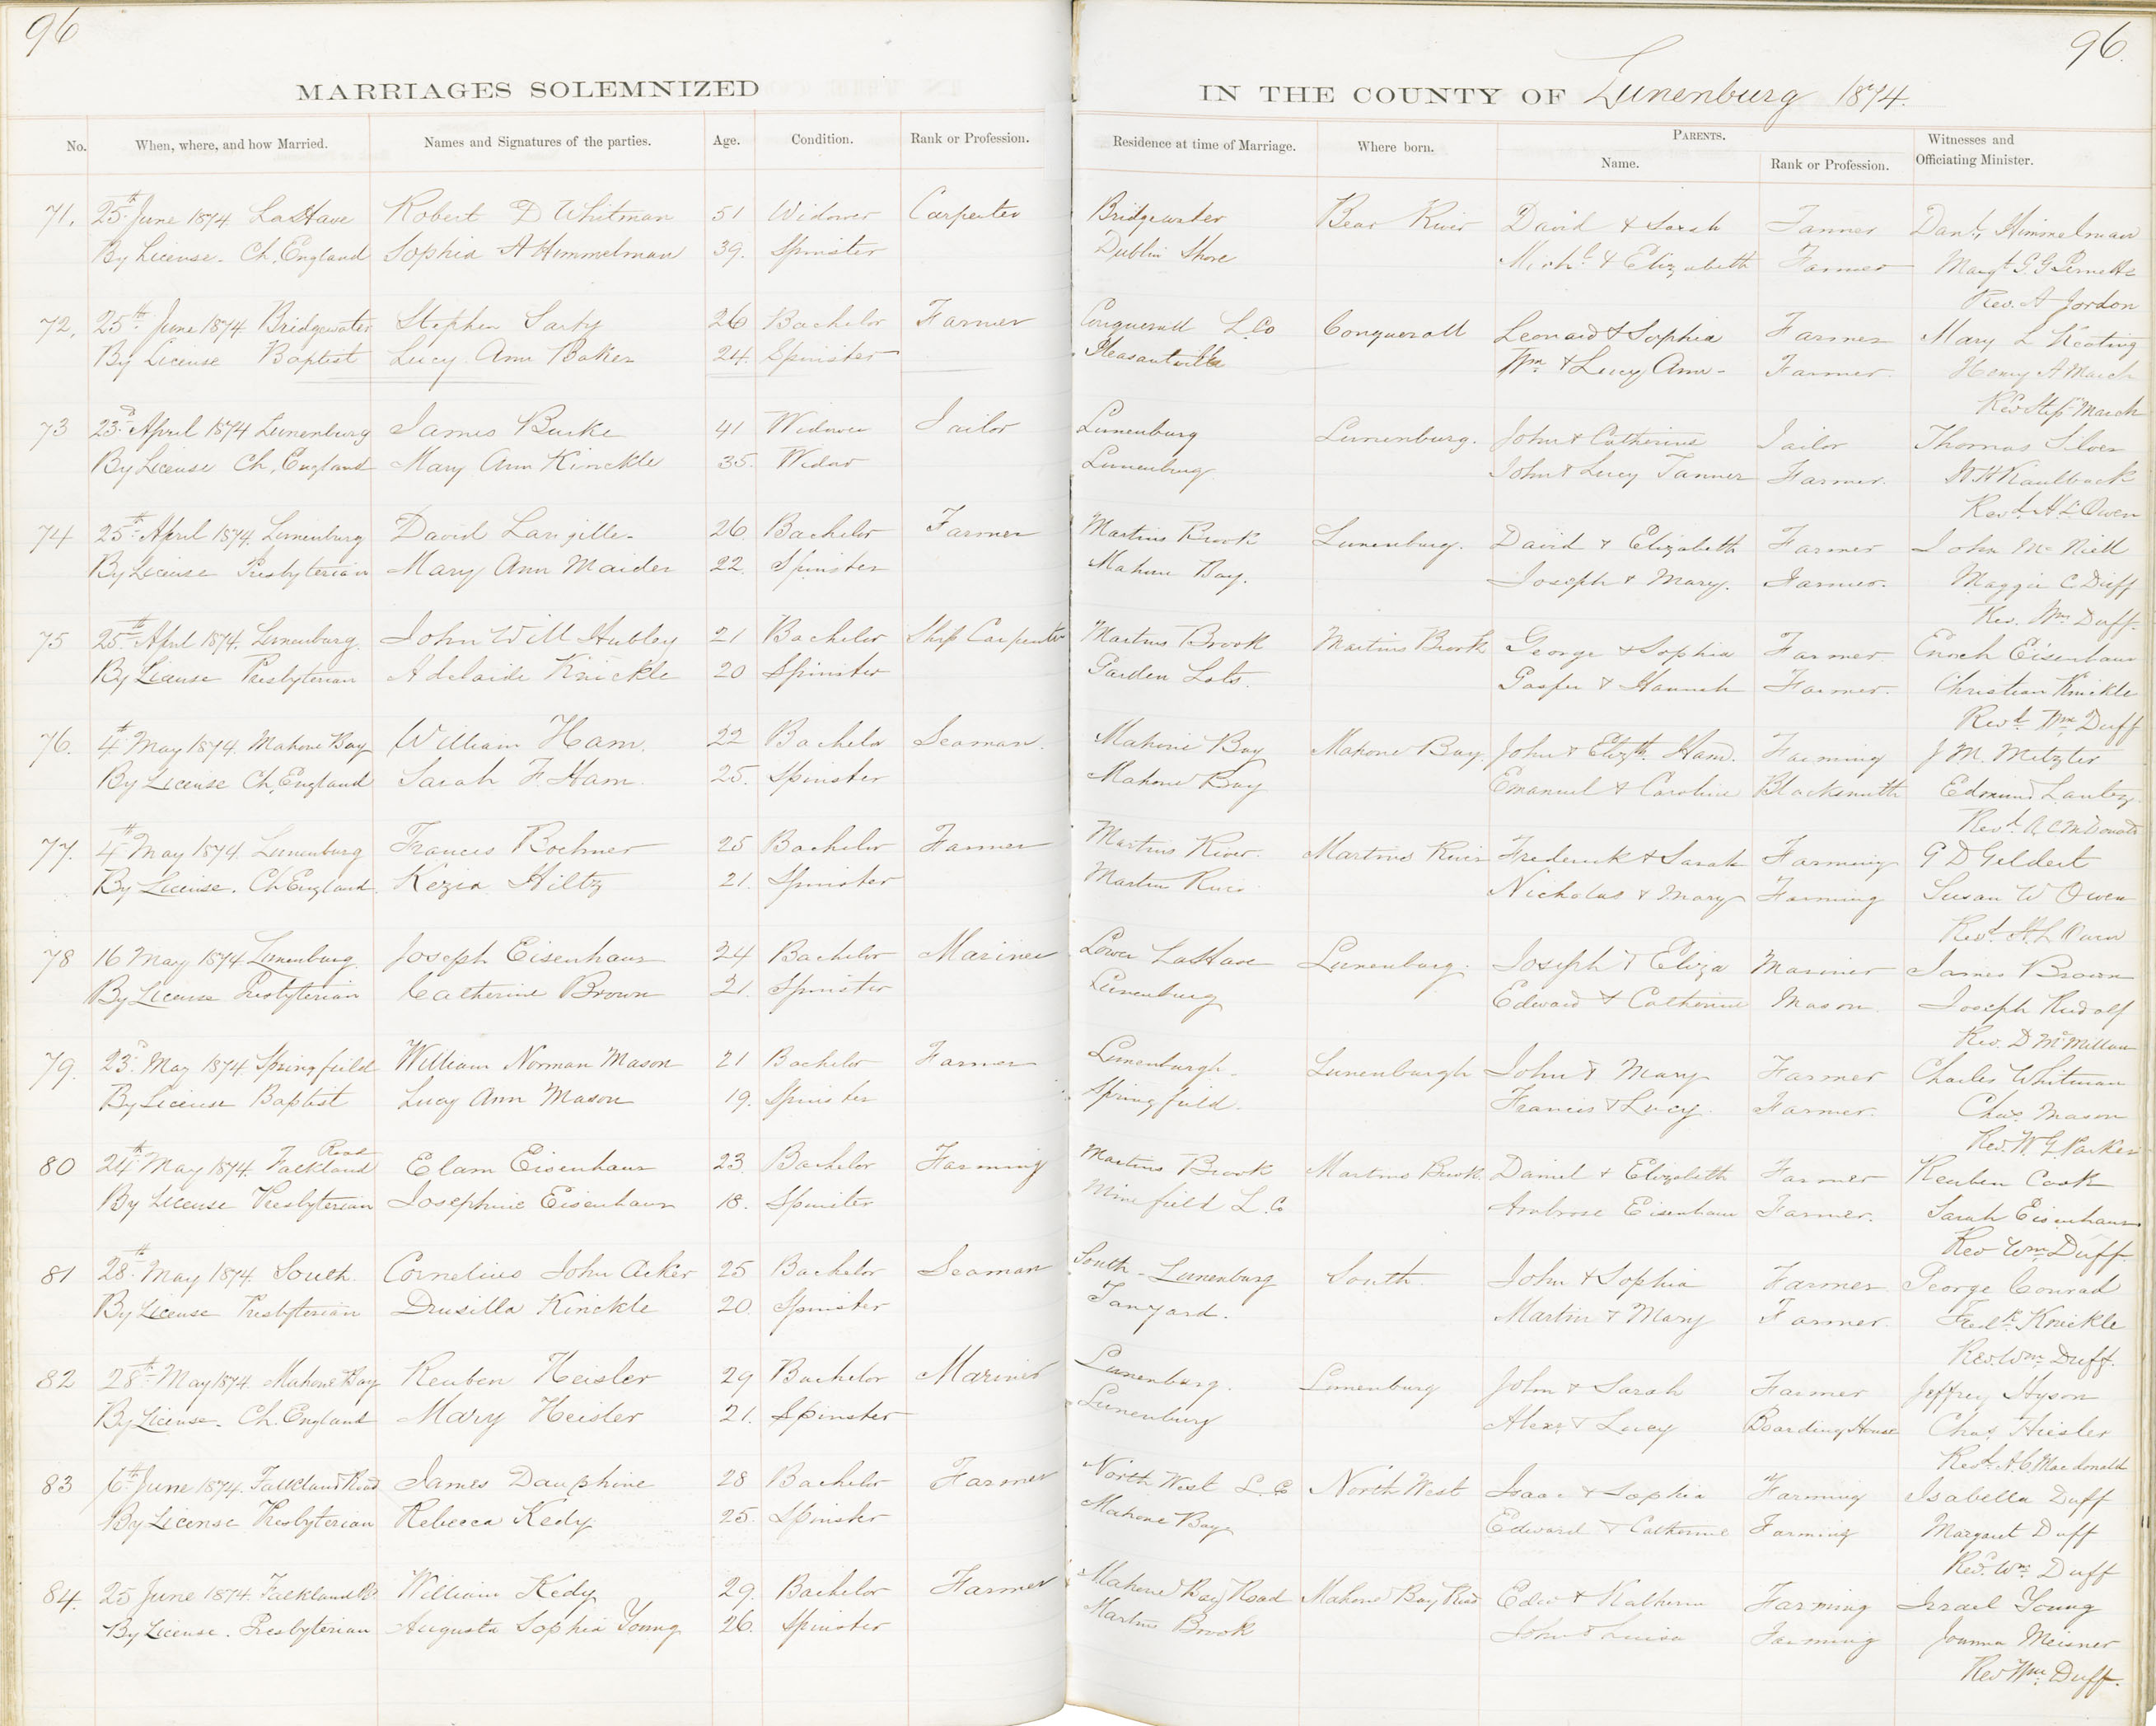 96
96.
MARRIAGES SOLEMNIZED
IN THE COUNTY OF Lunenburg 1874.
No. When, where, and how Married. Names and Signatures of the parties. Age. Condition. Rank or Profession. Residence at time of Marriage. Where born. PARENTS. Name. Rank or Profession. Witnesses and Officiating Minister.
71. 25th June 1874 LaHave Robert D Whitman 51 Widower Carpenter Bridgewater Bear River David & Sarah Tanner Danl. Himmelman
By License. Ch. England Sophia A Himmelman 39. Spinster Dublin Shore Michl. & Elizabeth Farmer Margt G. G Pernette
Rev. A Jordon
72. 25th June 1874 Bridgewater Stephen Sarty 26 Bachelor Farmer Conquerall L.Co Conquerall Leonard & Sophia Farmer Mary L Keating
By License Baptist Lucy Ann Baker 24. Spinster Pleasantville Wm & Lucy Ann - Farmer. Henry A March
Revd Stepn March
73 23d April 1874 Lunenburg James Burke 41 Widower Tailor Lunenburg Lunenburg. John & Catherine Tailor Thomas Silver
By License Ch. England Mary Ann Kinckle 35. Widow Lunenburg John & Lucy Tanner Farmer. W H Kaulback
Revd. H. L Owen
74 25th April 1874. Lunenburg David Langille. 26. Bachelor Farmer Martins Brook Lunenburg. David & Elizabeth Farmer John McNeill
By License Presbyterian Mary Ann Maider 22. Spinster Mahone Bay. Joseph & Mary. Farmer. Maggie C Duff
Rev. Wm Duff.
75 25th April 1874. Lunenburg. John Will Hubley 21 Bachelor Ship Carpenter Martins Brook Martins Brook George & Sophia Farmer Enoch Eisenhaur
By License Presbyterian Adelaide Knickle 20 Spinster Garden Lots. Gasper & Hannah Farmer. Christian Knickle
Revd. Wm Duff
76. 4th May 1874. Mahone Bay William Ham. 22 Bachelor Seaman. Mahone Bay Mahone Bay. John & Elizth. Ham. Farming J M. Mitzler
By License Ch. England Sarah F. Ham. 25. Spinster Mahone Bay Emanuel & Caroline Blacksmith Edmund Lantz
Revd. A C McDonald
77. 4th May 1874. Lunenburg Francis Boehner 25 Bachelor Farmer Martins River. Martins River Frederick & Sarah Farming G D Geldert
By License. Ch England. Kezia Hiltz 21. Spinster Martin River Nicholas & Mary Farming Susan W Owen
Revd. H. L Owen
78 16 May 1874 Lunenburg. Joseph Eisenhaur 24 Bachelor Mariner Lower LaHave Lunenburg. Joseph & Eliza Mariner James Brown
By License Presbyterian Catherine Brown 21. Spinster Lunenburg Edward & Catherine Mason. Joseph Rudolf
Rev. D McMillan
79. 23d May 1874. Springfield William Norman Mason 21 Bachelor Farmer Lunenburgh. Lunenburgh John & Mary Farmer Charles Whitman
By License Baptist Lucy Ann Mason 19. Spinster Springfield. Francis & Lucy. Farmer. Chas Mason
Rev. W G Parker
80 24th May 1874. Falkland Road Elam Eisenhaur 23. Bachelor Farming Martins Brook Martins Brook. Daniel & Elizabeth Farmer Reuben Cook
By License Presbyterian Josephine Eisenhaur 18. Spinster Minefield L. Co Ambrose Eisenhaur Farmer. Sarah Eisenhaur
Rev Wm Duff
81 28th May 1874. South. Cornelius John Acker 25 Bachelor Seaman South - Lunenburg South. John & Sophia Farmer George Conrad
By License Presbyterian Drusilla Kinckle 20. Spinster Tanyard. Martin & Mary Farmer. Fredk Knickle
Rev. Wm Duff.
82 28th May 1874. Mahone Bay Reuben Heisler 29 Bachelor Mariner Lunenburg. Lunenburg John & Sarah Farmer Jeffrey Hyson
By License. Ch. England Mary Heisler 21. Spinster Lunenburg Alexr & Lucy Boarding House Chas Hiesler
Revd. A. C. Macdonald
83 6th June 1874. Falkland Road James Dauphine 28 Bachelor Farmer North West L. C North West Isaac & Sophia Farming Isabella Duff
By License Presbyterian Rebecca Kedy. 25. Spinster Mahone Bay Edward & Catherine Farming Margaret Duff
Revd. Wm Duff
84. 25 June 1874. Falkland Rd. William Kedy 29. Bachelor Farmer Mahone Bay Road Mahone Bay Road Edw & Katherin Farming Israel Young
By License. Presbyterian Augusta Sophia Young 26. Spinster Martins Brook John & Luisa Farming Joanna Meisner
Rev Wm Duff.